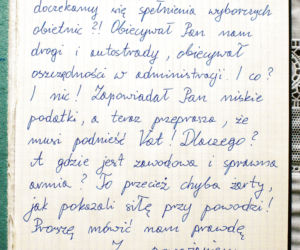 doczekamy się spełnienia wyborczych
obietnic?! Obiecywał Pan nam
drogi i autostrady, obiecywał
oszczędności w administracji. I co?
I nic! Zapowiadał Pan niskie
podatki, a teraz przeprasza, że
musi podnieść Vat! Dlaczego?
A gdzie jest zawodowa i sprawna
armia? To przecież chyba żarty,
jak pokazali siłę przy powodzi!
Proszę mówić nam prawdę
Z poważaniem